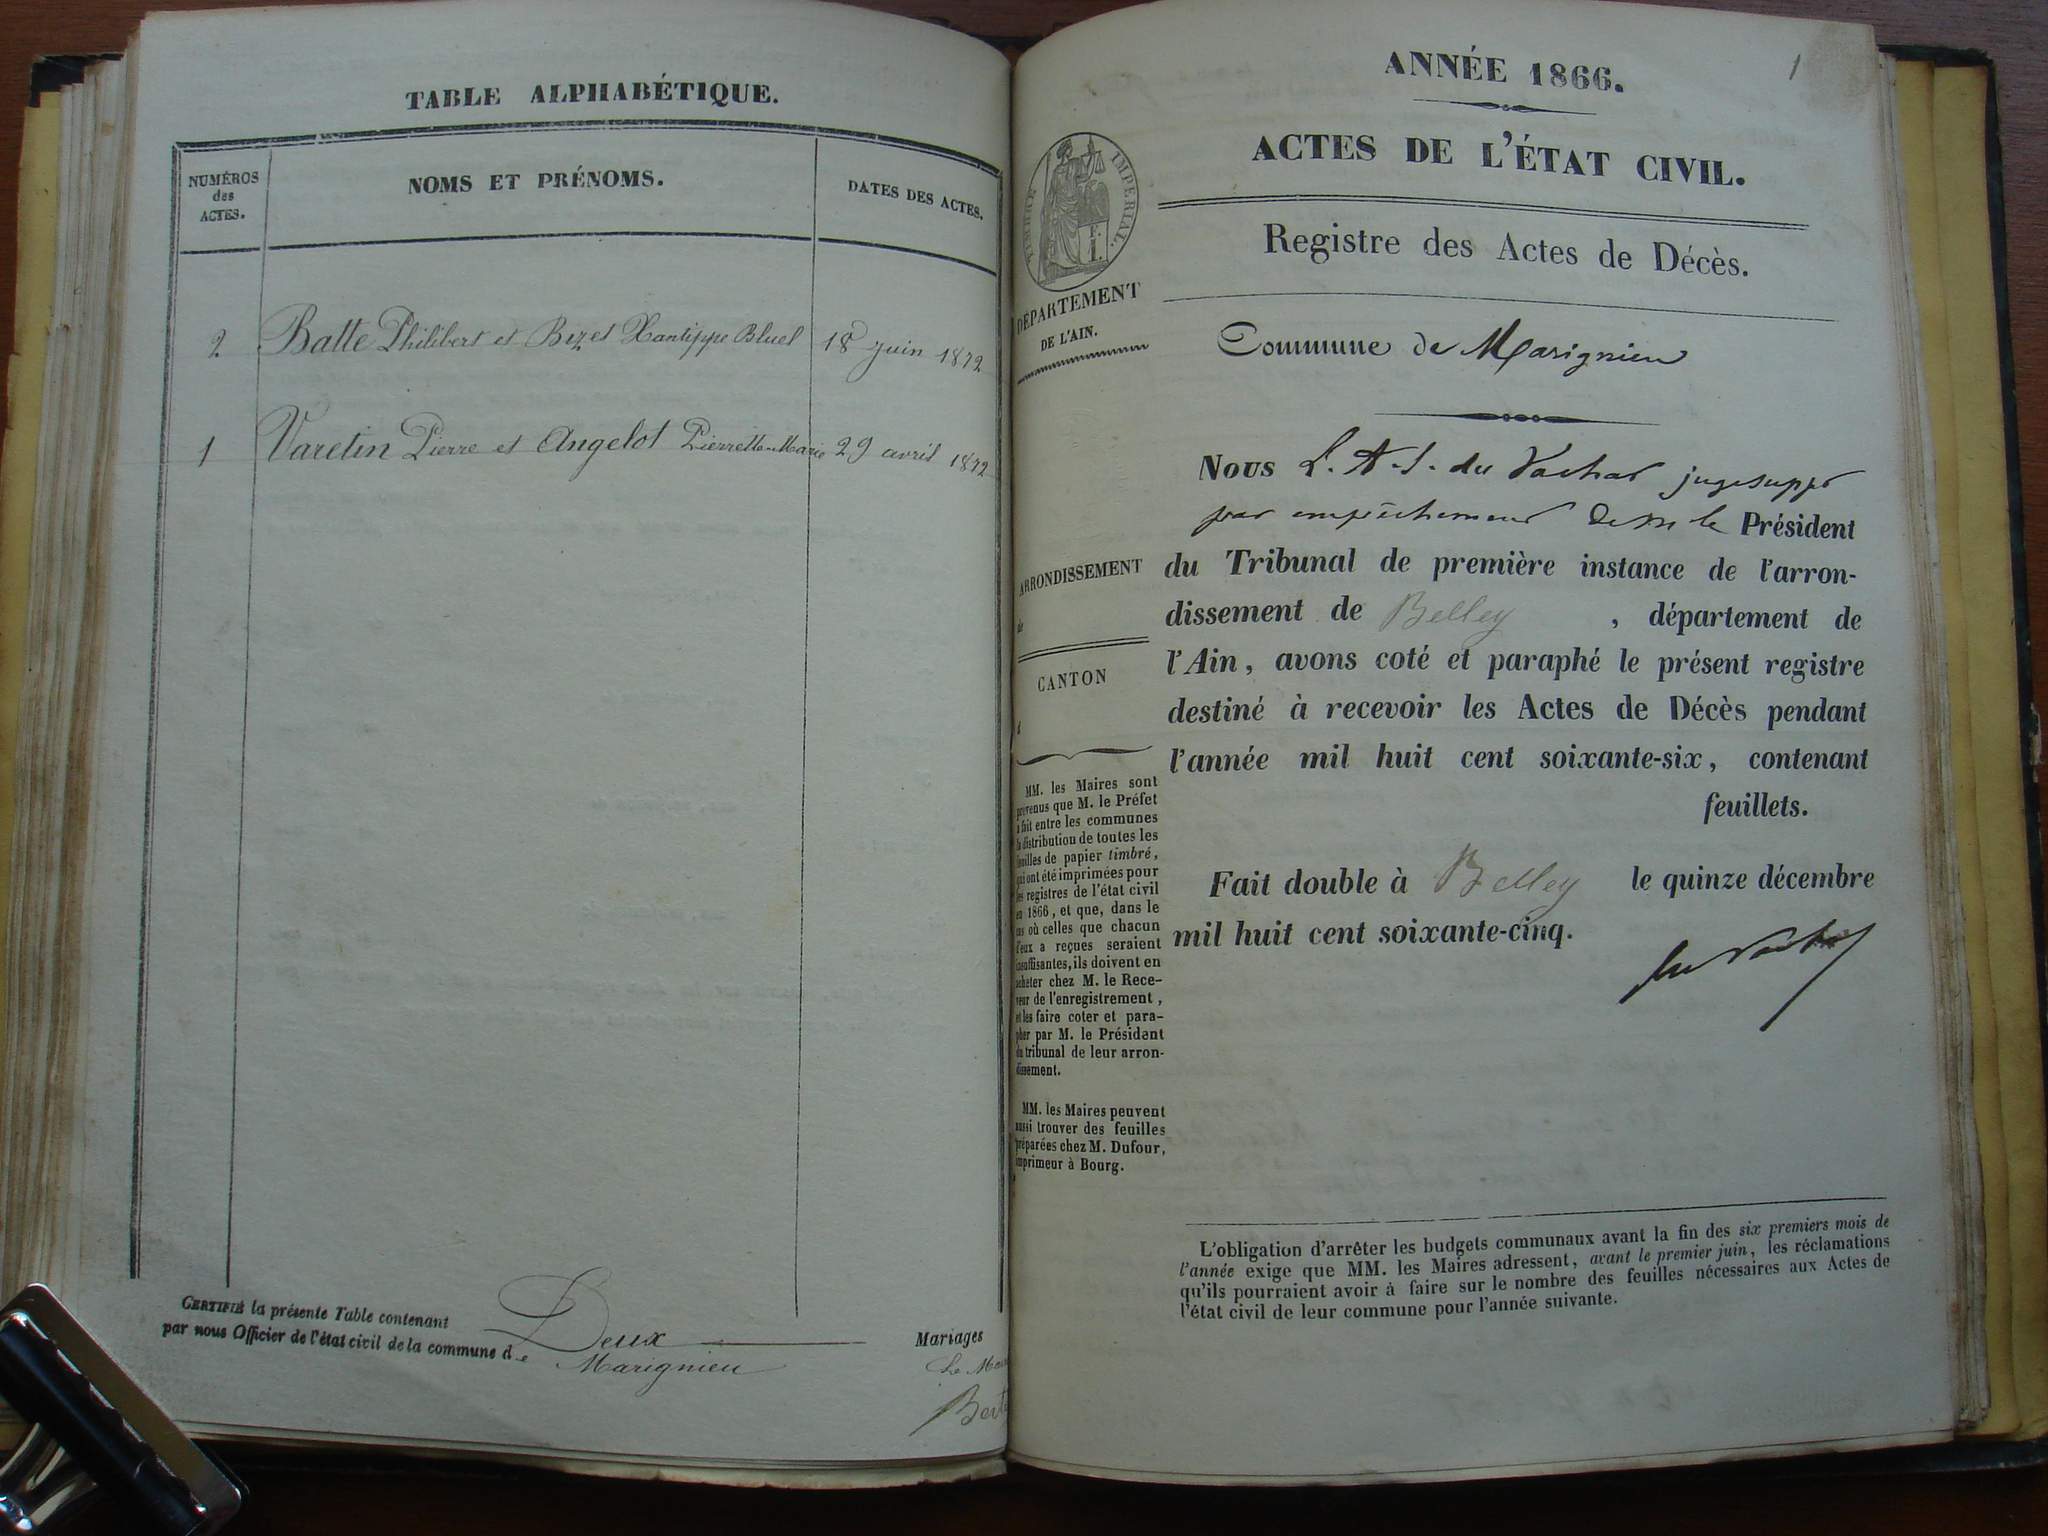 TABLE ALPHABÉTIQUE.
NUMÉROS
des
ACTES.
NOMS ET PRÉNOMS.
DATES DES ACTES.
2 Batte Philibert et Bizet Xantippe Bluel 18 juin 1872
1 Varetin Pierre et Angelot Pierrette Marie 29 avril 1872
CERTIFIÉ la présente Table contenant Deux Mariages
par nous Officier de l'état civil de la commune de Marignieu
Le
1
ANNÉE 1866.
ACTES DE L'ÉTAT CIVIL.
Registre des Actes de Décès.
TIMBRE IMPERIAL.
DÉPARTEMENT
DE L'AIN.
Commune de Marignieu
ARRONDISSEMENT
de
CANTON
Nous L. A. du juge supp
par empêchement de M le Président
du Tribunal de première instance de l'arron-
dissement de Belley , département de
l'Ain, avons coté et paraphé le présent registre
destiné à recevoir les Actes de Décès pendant
l'année mil huit cent soixante-six, contenant
feuillets.
Fait double à Belley le quinze décembre
mil huit cent soixante-cinq.
MM. les Maires sont
prévenus que M. le Préfet
a fait entre les communes
la distribution de toutes les
feuilles de papier timbré,
qui ont été imprimées pour
les registres de l'état civil
en 1866, et que, dans le
cas où celles que chacun
d'eux a reçues seraient
insuffisantes, ils doivent en
acheter chez M. le Rece-
veur de l'enregistrement,
et les faire coter et para-
pher par M. le Président
du tribunal de leur arron-
dissement.
MM. les Maires peuvent
aussi trouver des feuilles
préparées chez M. Dufour,
imprimeur à Bourg.
L'obligation d'arrêter les budgets communaux avant la fin des six premiers mois de
l'année exige que MM. les Maires adressent, avant le premier juin, les réclamations
qu'ils pourraient avoir à faire sur le nombre des feuilles nécessaires aux Actes de
l'état civil de leur commune pour l'année suivante.